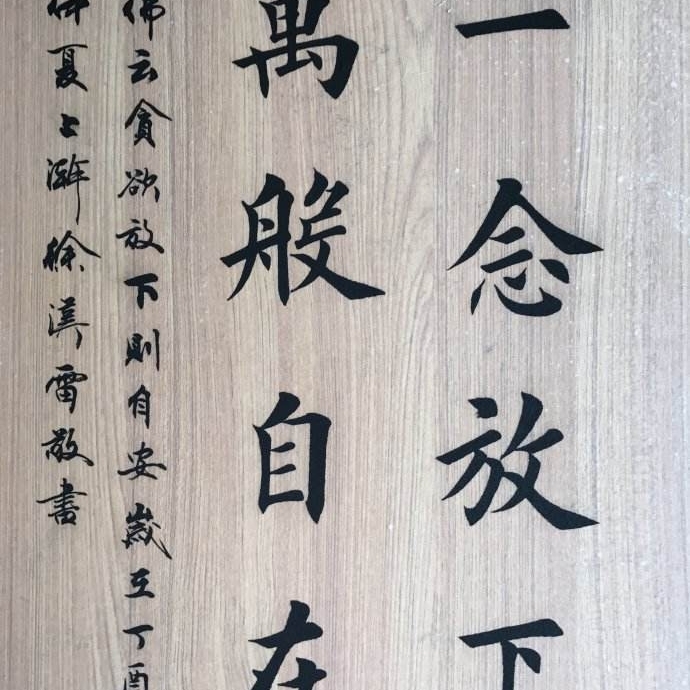 一念放下
萬般自在
佛云貪欲放下則自安歲在丁酉
仲夏上澣徐漢雷敬書